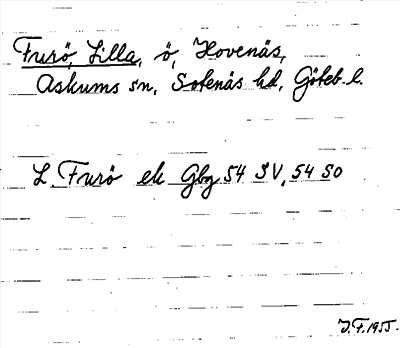 Furö, Lilla, ö, Hovenäs,
Askums sn, Sotenäs hd, Göteb. l.
L. Furö ek Gbg 54 SV, 54 SO
J.F. 1955.